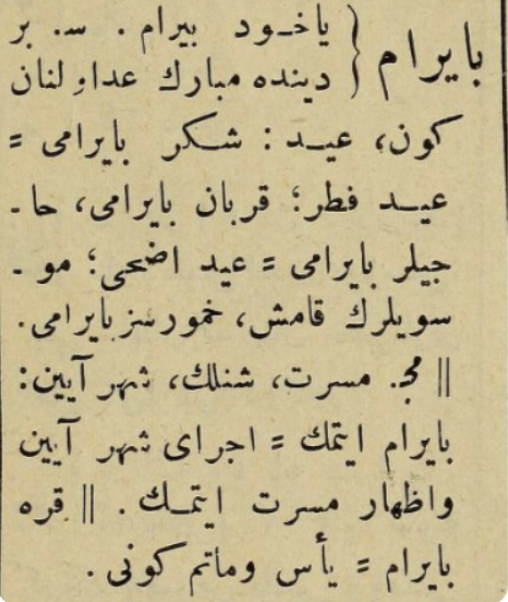 بايرام { ياخود بيرام . سـ. بر
دينده مبارك عداولنان
كون، عيد : شكر بايرامى =
عيد فطر؛ قربان بايرامى، حا-
جيلر بايرامى = عيد اضحى؛ مو-
سويلرك قامش، خمورسز بايرامى.
|| مجـ. مسرت، شنلك، شهر آيين:
بايرام ايتمك = اجراى شهر آيين
واظهار مسرت ايتمك . || قره
بايرام = يأس وماتم كونى .